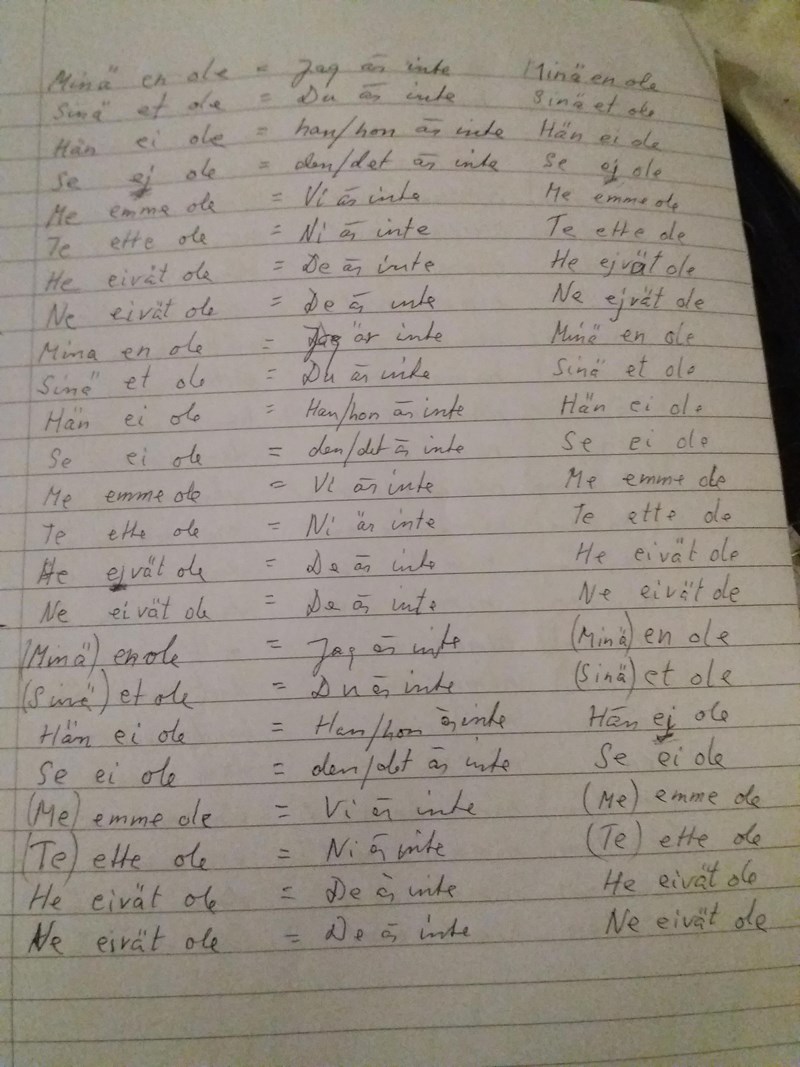 Minä en ole = Jag är inte Minä en ole
Sinä et ole = Du är inte Sinä et ole
Hän ei ole = han/hon är inte Hän ei ole
Se ej ole = den/det är inte Se ej ole
Me emme ole = Vi är inte Me emme ole
Te ette ole = Ni är inte Te ette ole
He eivät ole = De är inte He ejvät ole
Ne eivät ole = De är inte Ne ejvät ole
Mina en ole = Jag är inte Minä en ole
Sinä et ole = Du är inte Sinä et ole
Hän ei ole = Han/hon är inte Hän ei ole
Se ei ole = den/det är inte Se ei ole
Me emme ole = Vi är inte Me emme ole
Te ette ole = Ni är inte Te ette ole
He ejvät ole = De är inte He eivät ole
Ne eivät ole = De är inte Ne eivät ole
(Minä) en ole = Jag är inte (Minä) en ole
(Sinä) et ole = Du är inte (Sinä) et ole
Hän ei ole = Han/hon är inte Hän ej ole
Se ei ole = den/det är inte Se ei ole
(Me) emme ole = Vi är inte (Me) emme ole
(Te) ette ole = Ni är inte (Te) ette ole
He eivät ole = De är inte He eivät ole
Ne eivät ole = De är inte Ne eivät ole